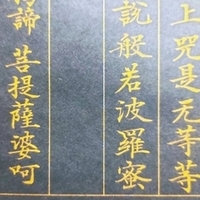 上咒是无等等
說般若波羅蜜
諦 菩提薩婆呵